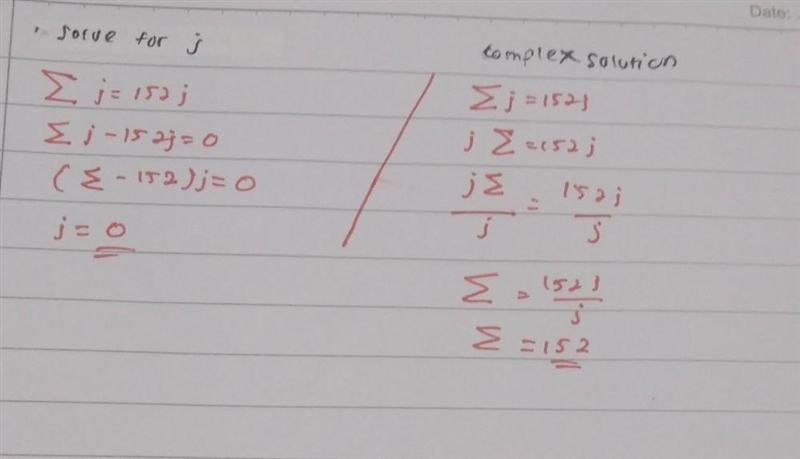 Date:
solve for j
Σ j = 152 j
Σ j - 152j = 0
(Σ - 152) j = 0
j = 0
complex solution
Σ j = 152j
j Σ = 152 j
jΣ/j = 152j/j
Σ = 152j/j
Σ = 152